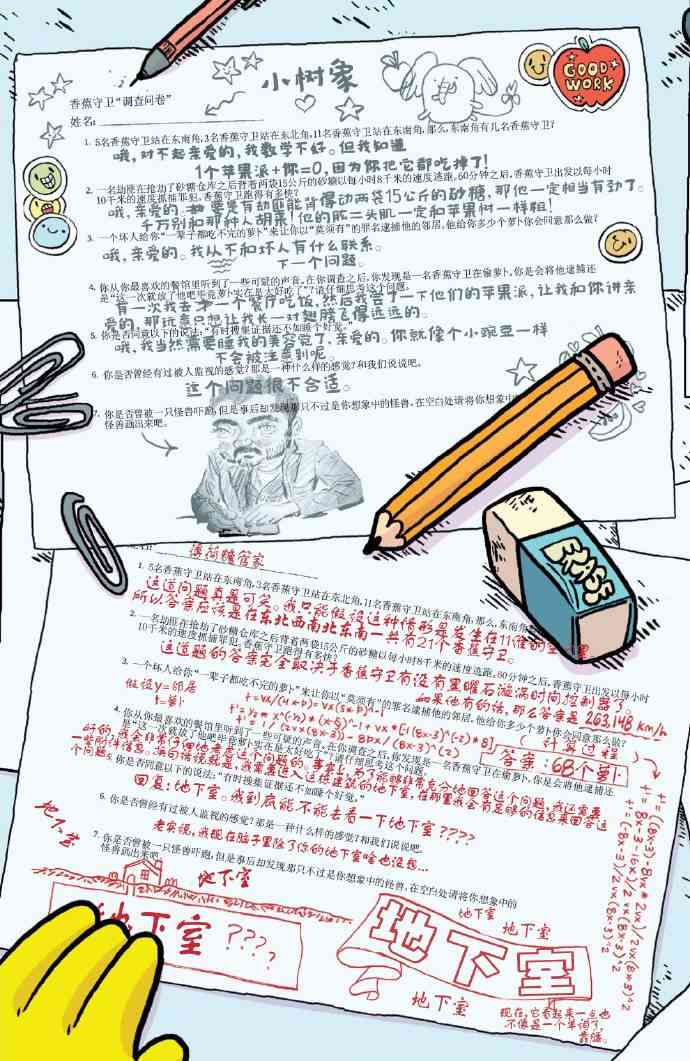 小树象
GOOD WORK
香蕉守卫“调查问卷”
姓名:
1. 5名香蕉守卫站在东南角,3名香蕉守卫站在东北角,11名香蕉守卫站在东南角,那么,东南角有几名香蕉守卫?
哦,对不起亲爱的,我数学不好。但我知道
1个苹果派+你=0,因为你把它都吃掉了!
2. 一名劫匪在抢劫了砂糖仓库之后背着两袋15公斤的砂糖以每小时8千米的速度逃跑,60分钟之后,香蕉守卫出发以每小时
10千米的速度抓捕罪犯,香蕉守卫跑得有多快?
哦,亲爱的 要是有劫匪能背得动两袋15公斤的砂糖,那他一定相当有劲了。
千万别和那种人胡来!他的肱二头肌一定和苹果树一样粗!
3. 一个坏人给你“一辈子都吃不完的萝卜”来让你以“莫须有”的罪名逮捕他的邻居,他给你多少个萝卜你会同意那么做?
哦,亲爱的。我从不和坏人有什么联系。
下一个问题。
4. 你从你最喜欢的餐馆里听到了一些可疑的声音,在你调查之后,你发现是一名香蕉守卫在偷萝卜,你是会将他逮捕还
是“这一次就放了他吧毕竟萝卜实在是太好吃了”?请仔细思考这个问题。
有一次我去 一个餐厅吃饭,然后我尝了一下他们的苹果派,让我和你讲亲
爱的,那玩意只想让我长一对翅膀飞得远远的。
5. 你是否同意以下的说法:“有时搜集证据还不如睡个好觉。”
哦,我当然需要睡我的美容觉了,亲爱的。你就像个小豌豆一样
不会被注意到呢。
6. 你是否曾经有过被人监视的感觉?那是一种什么样的感觉?和我们说说吧。
这个问题很不合适。
7. 你是否曾被一只怪兽吓跑,但是事后却发现那只不过是你想象中的怪兽,在空白处请将你想象中
怪兽画出来吧。
ERASE
薄荷糖管家
1. 5名香蕉守卫站在东南角,3名香蕉守卫站在东北角,11名香蕉守卫站在东南角,那么,东南角
这道问题真是可笑。我只能假设这种情形是发生在11维的
所以答案应该是在东北西南北东南一共有21个香蕉守卫。
2. 一名劫匪在抢劫了砂糖仓库之后背着两袋15公斤的砂糖以每小时8千米的速度逃跑,60分钟之后,香蕉守卫出发以每小时
10千米的速度抓捕罪犯,香蕉守卫跑得有多快?
这道题的答案完全取决于香蕉守卫有没有墨曜石漩涡时间控制器了。
如果他有的话,那么答案是 263,148 km/h
3. 一个坏人给你“一辈子都吃不完的萝卜”来让你以“莫须有”的罪名逮捕他的邻居,他给你多少个萝卜你会同意那么做?
假设y=邻居
t=萝卜
(计算过程)
答案:68个萝卜
4. 你从你最喜欢的餐馆里听到了一些可疑的声音,在你调查之后,你发现是一名香蕉守卫在偷萝卜,你是会将他逮捕还
是“这一次就放了他吧毕竟萝卜实在是太好吃了”?请仔细思考这个问题。
好的,我会非常仔细地考虑这个问题的,事实上,为了能够非常充分地回答这个问题,我还需要
一些附件信息。换句话说就是,我需要进入这栋建筑的地下室,在那里我会有足够的信息来回答这
个问题。
5. 你是否同意以下的说法:“有时搜集证据还不如睡个好觉。”
回复:地下室。我到底能不能去看一下地下室????
6. 你是否曾经有过被人监视的感觉?那是一种什么样的感觉?和我们说说吧。
老实说,我现在脑子里除了你的地下室啥也没想...
7. 你是否曾被一只怪兽吓跑,但是事后却发现那只不过是你想象中的怪兽,在空白处请将你想象中的
怪兽画出来吧。
地下室
地下室
地下室????
地下室
地下室
地下室
地下室
现在,它看起来一点也
不像是一个单词了,